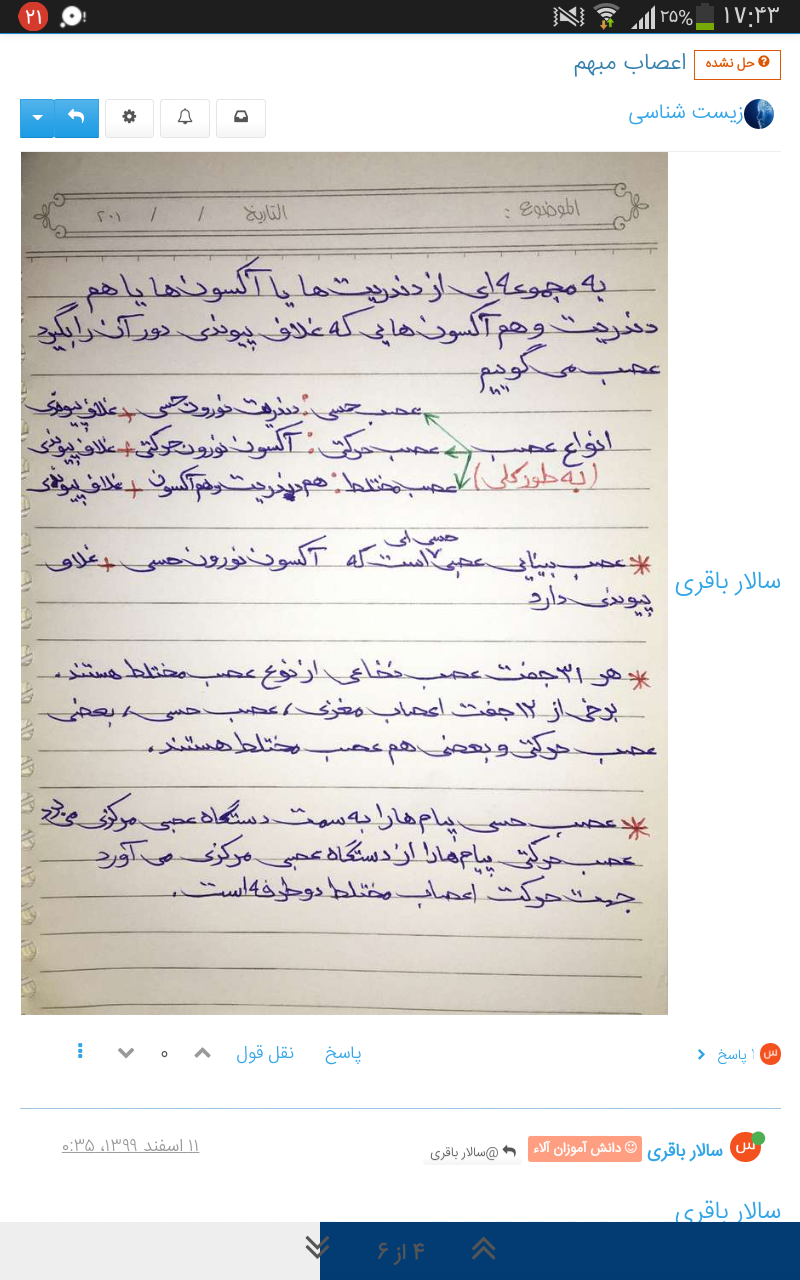 ۱۷:۴۳ ۲۵% ۲۱
حل نشده اعصاب مبهم
زیست شناسی
الموضوع : التاریخ / / ۲۰۱
به مجموعه ای از دندریت ها یا آکسون ها یا هم
دندریت و هم آکسون هایی که غلاف پیوندی دور آن را بگیرد
عصب می گوییم
عصب حسی : دندریت نورون حسی + غلاف پیوندی
انواع عصب عصب حرکتی : آکسون نورون حرکتی + غلاف پیوندی
(به طور کلی) عصب مختلط : هم دندریت و هم آکسون + غلاف پیوندی
حسی ای
* عصب بینایی عصبی است که آکسون نورون حسی + غلاف
پیوندی دارد
سالار باقری
* هر ۳۱ جفت عصب نخاعی از نوع عصب مختلط هستند .
برخی از ۱۲ جفت اعصاب مغزی ، عصب حسی ، بعضی
عصب حرکتی و بعضی هم عصب مختلط هستند .
* عصب حسی پیام ها را به سمت دستگاه عصبی مرکزی می برد
عصب حرکتی پیام ها را از دستگاه عصبی مرکزی می آورد
جهت حرکت اعصاب مختلط دو طرفه است .
س ۱ پاسخ پاسخ نقل قول ۰
س سالار باقری دانش آموزان آلاء @سالار باقری ۱۱ اسفند ۱۳۹۹، ۰:۳۵
سالار باقری
۴ از ۶